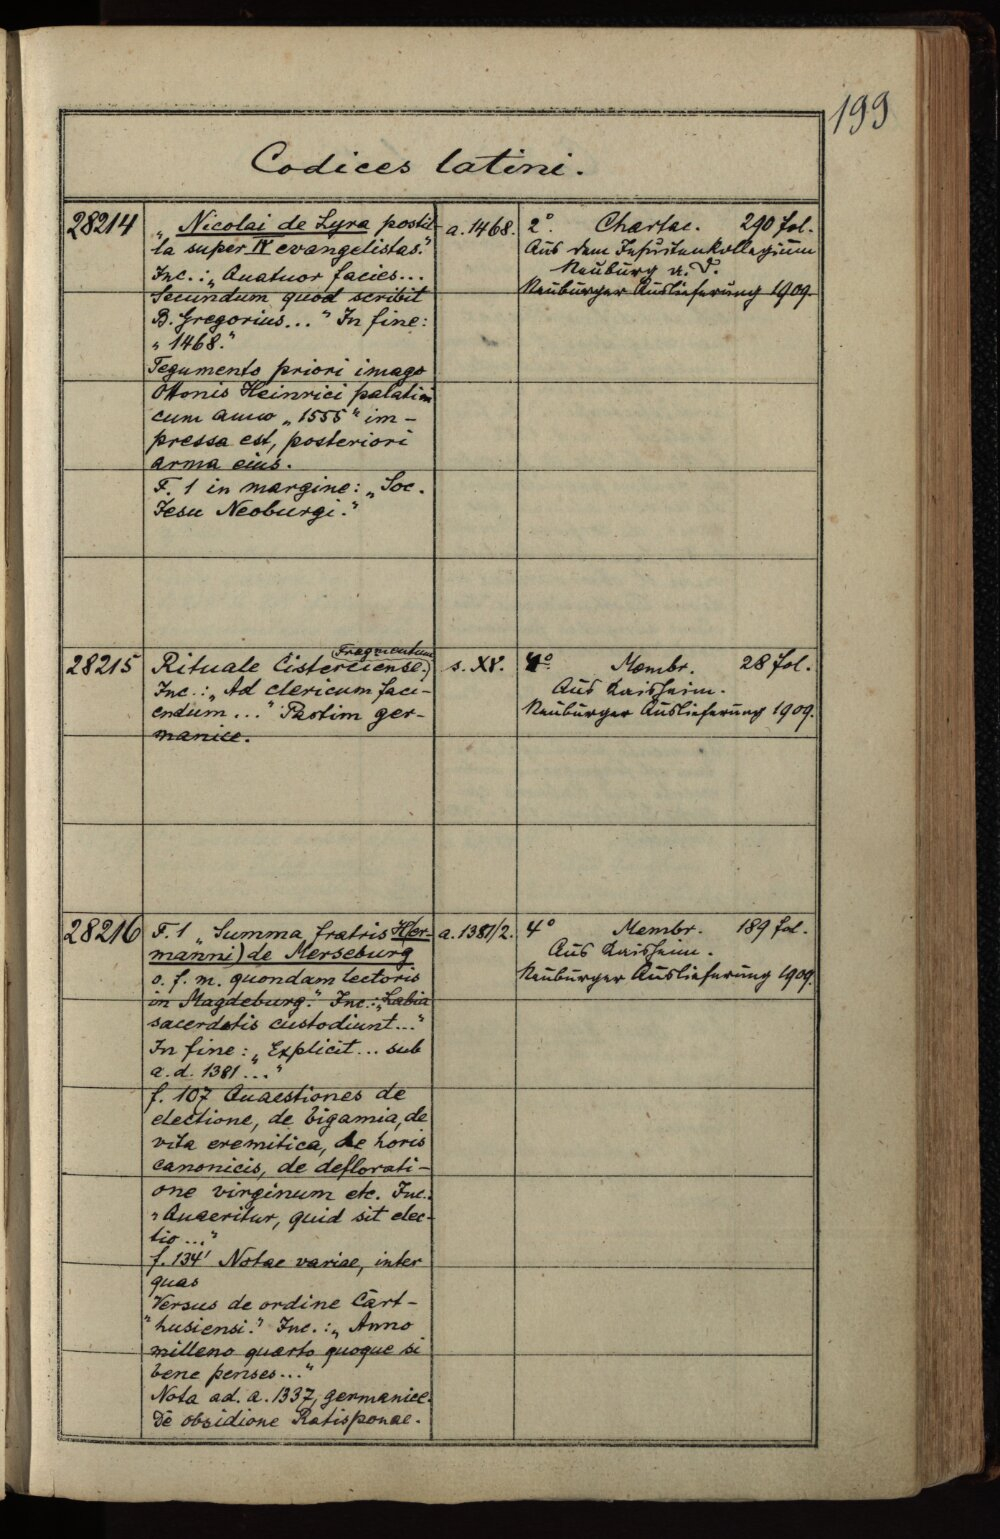 199
Codices latini.
28214
„Nicolai de Lyra postil-
la super IV evangelistas.“
Inc.: „Quatuor facies...
Secundum quod scribit
B. Gregorius...“ In fine:
„1468.“
Tegumento priori imago
Ottonis Heinrici palatini
cum anno „1555“ im-
pressa est, posteriori
arma eius.
F. 1 in margine: „Soc.
Jesu Neoburgi.“
a. 1468.
2° Chartac. 290 fol.
Aus dem Jesuitenkollegium
Neuburg a. D.
Neuburger Auslieferung 1909.
28215
Rituale Cisterciense. (Fragmentum)
Inc.: „Ad clericum faci-
endum...“ Partim ger-
manice.
s. XV.
4° Membr. 28 fol.
Aus Kaisheim.
Neuburger Auslieferung 1909.
28216
F. 1 „Summa fratris H(er-
manni) de Merseburg
o. f. m. quondam lectoris
in Magdeburg.“ Inc.: „Labia
sacerdotis custodiunt...“
In fine: „Explicit... sub
a. d. 1381...“
f. 107 Quaestiones de
electione, de bigamia, de
vita eremitica, de horis
canonicis, de deflorati-
one virginum etc. Inc.:
„Quaeritur, quid sit elec-
tio...“
f. 134' Notae variae, inter
quas
„Versus de ordine Cart-
husiensi.“ Inc.: „Anno
milleno quarto quoque si
bene penses...“
Nota ad. a. 1337, germanice.
De obsidione Ratisponae.
a. 1381/2.
4° Membr. 189 fol.
Aus Kaisheim.
Neuburger Auslieferung 1909.